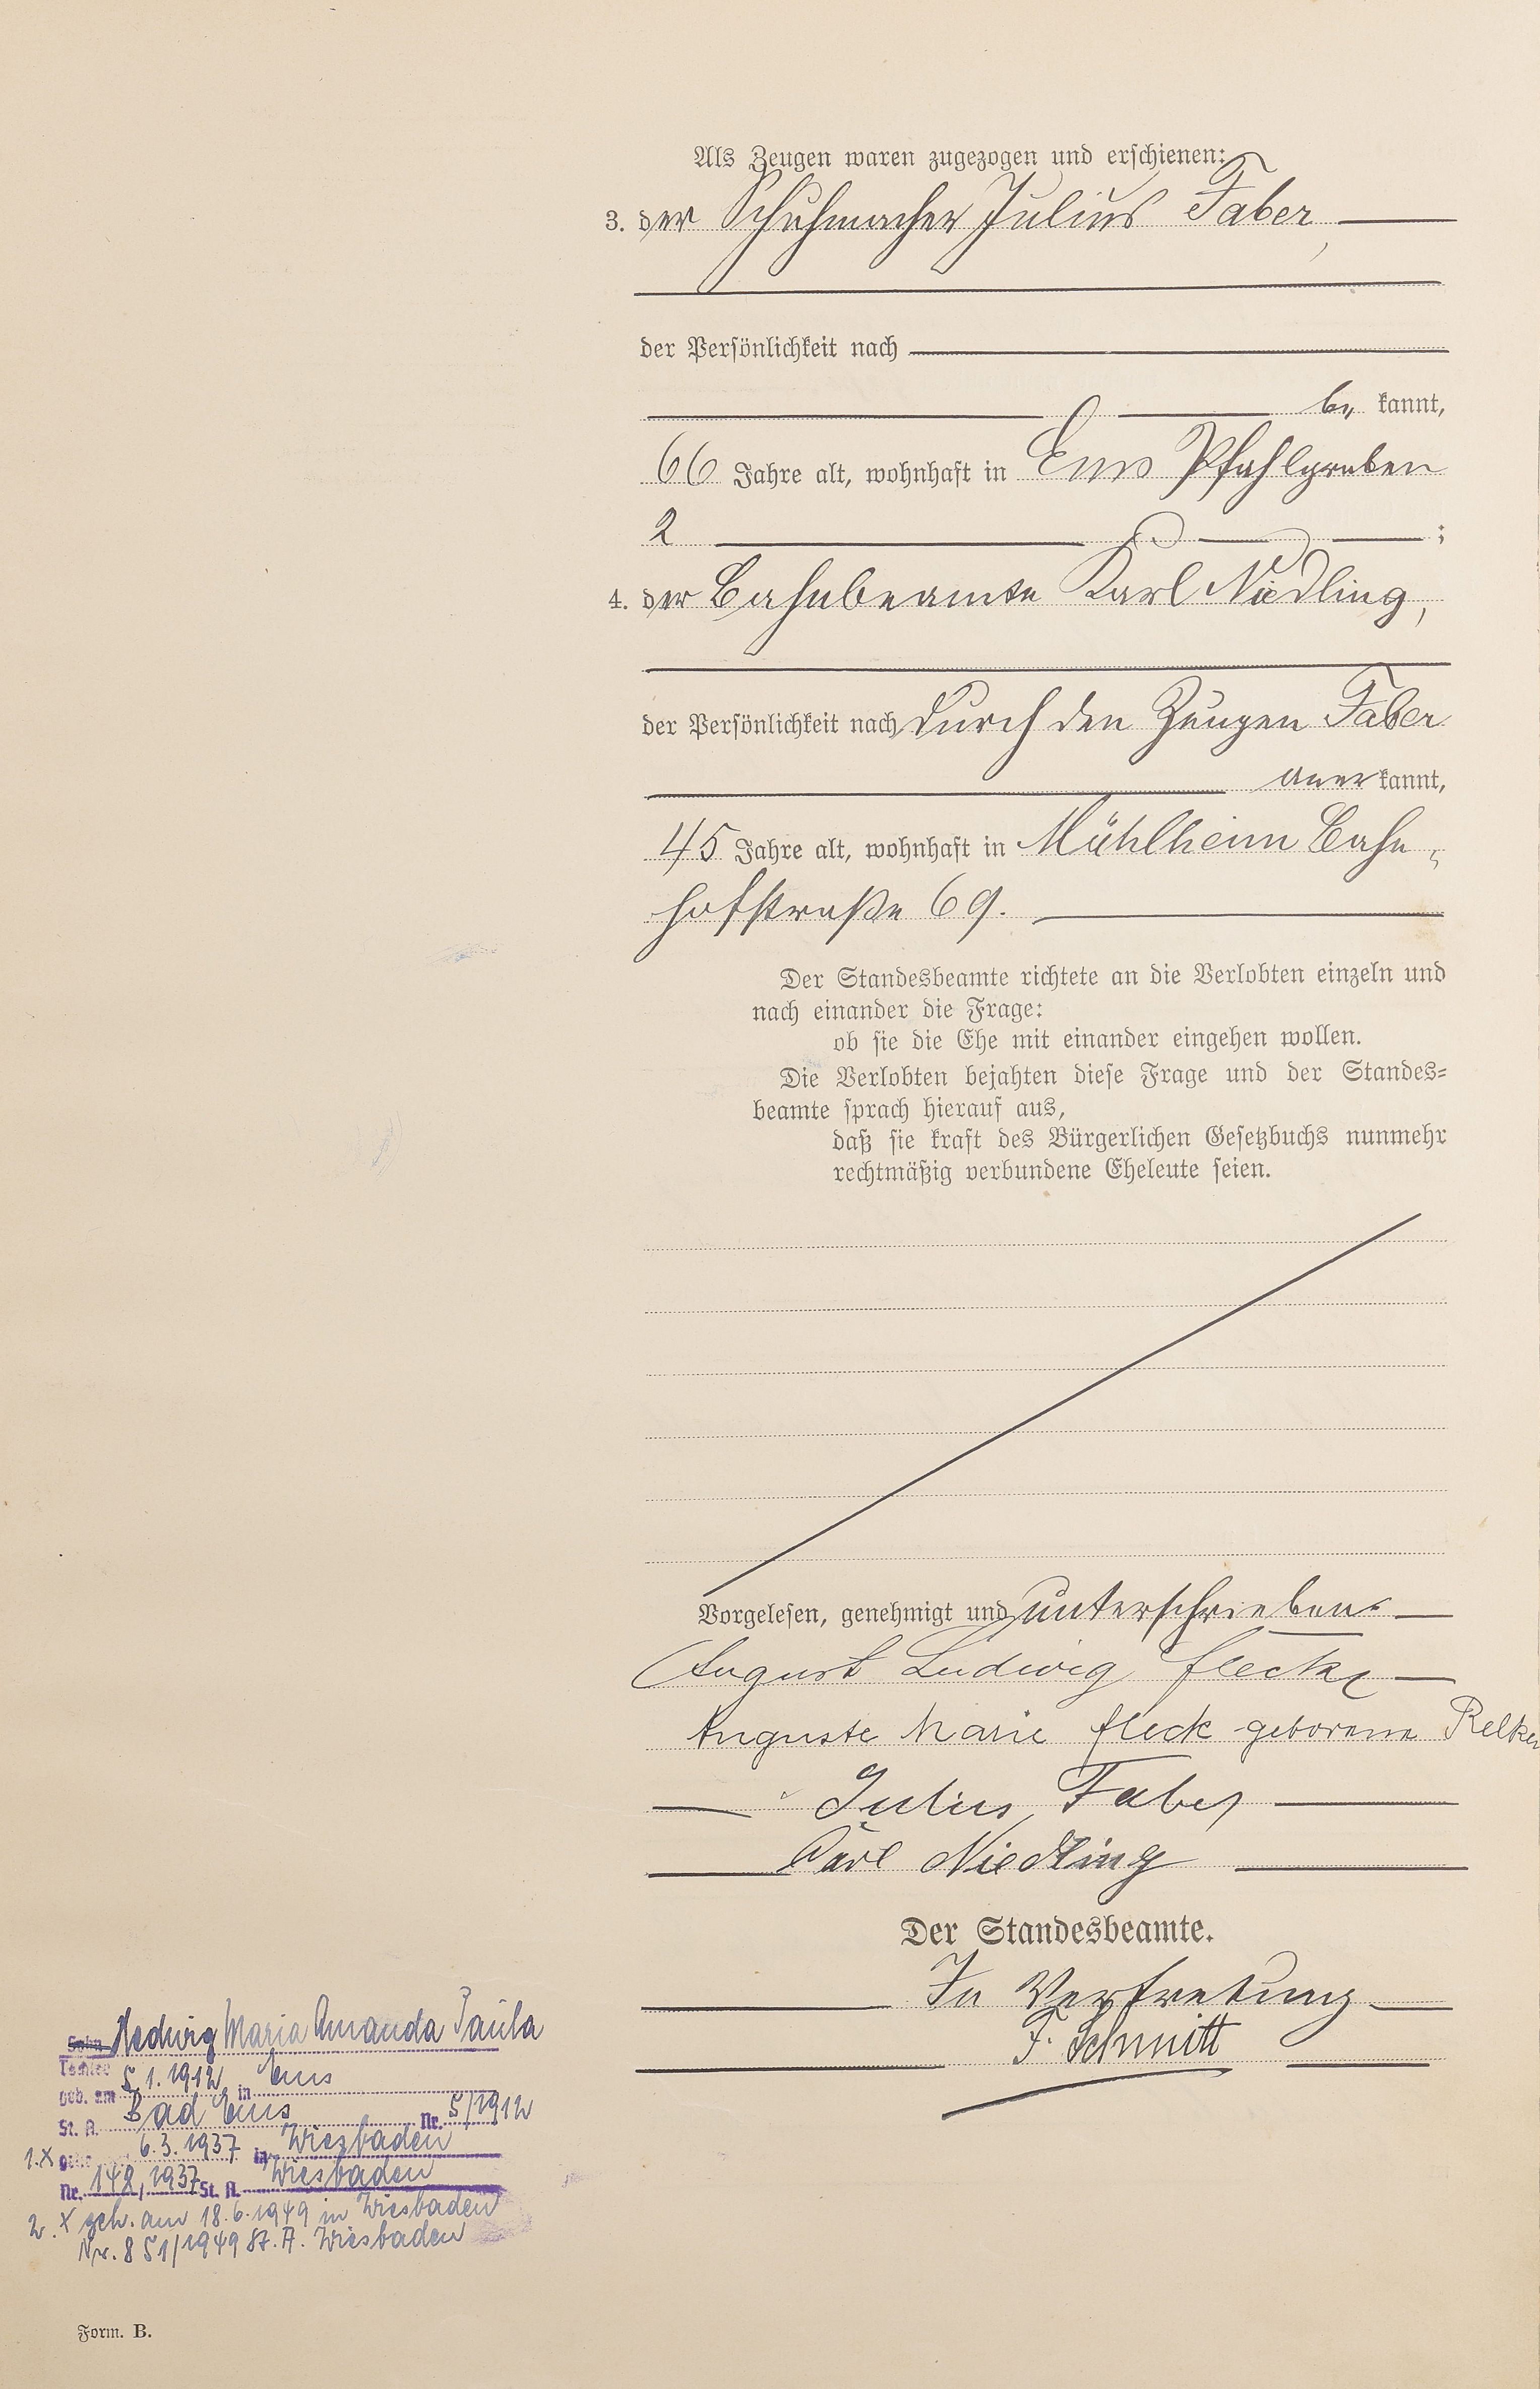 Als Zeugen waren zugezogen und erschienen:
3. der Schuhmacher Julius Faber,
der Persönlichkeit nach
be kannt,
66 Jahre alt, wohnhaft in Ems Pfahlgraben
2 ;
4. der Bahnbeamte Karl Niedling,
der Persönlichkeit nach durch den Zeugen Faber
aner kannt,
45 Jahre alt, wohnhaft in Mühlheim Bahn-
hofstraße 69.
Der Standesbeamte richtete an die Verlobten einzeln und
nach einander die Frage:
ob sie die Ehe mit einander eingehen wollen.
Die Verlobten bejahten diese Frage und der Standes=
beamte sprach hierauf aus,
daß sie kraft des Bürgerlichen Gesetzbuchs nunmehr
rechtmäßig verbundene Eheleute seien.
Vorgelesen, genehmigt und unterschrieben.
August Ludwig Fleck
Auguste Marie Fleck geborene
Julius Faber
Karl Niedling
Der Standesbeamte.
In Vertretung
F. Schmitt
Sohn Hedwig Maria Amanda Paula
Tochter
geb. am 5.1.1912 in Ems
St. A. Bad Ems Nr. 5/1912
1.X 6.3.1937 in Wiesbaden
Nr. 142/1937 St. A. Wiesbaden
2.X geh. am 18.6.1949 in Wiesbaden
Nr. 851/1949 St. A. Wiesbaden
Form. B.